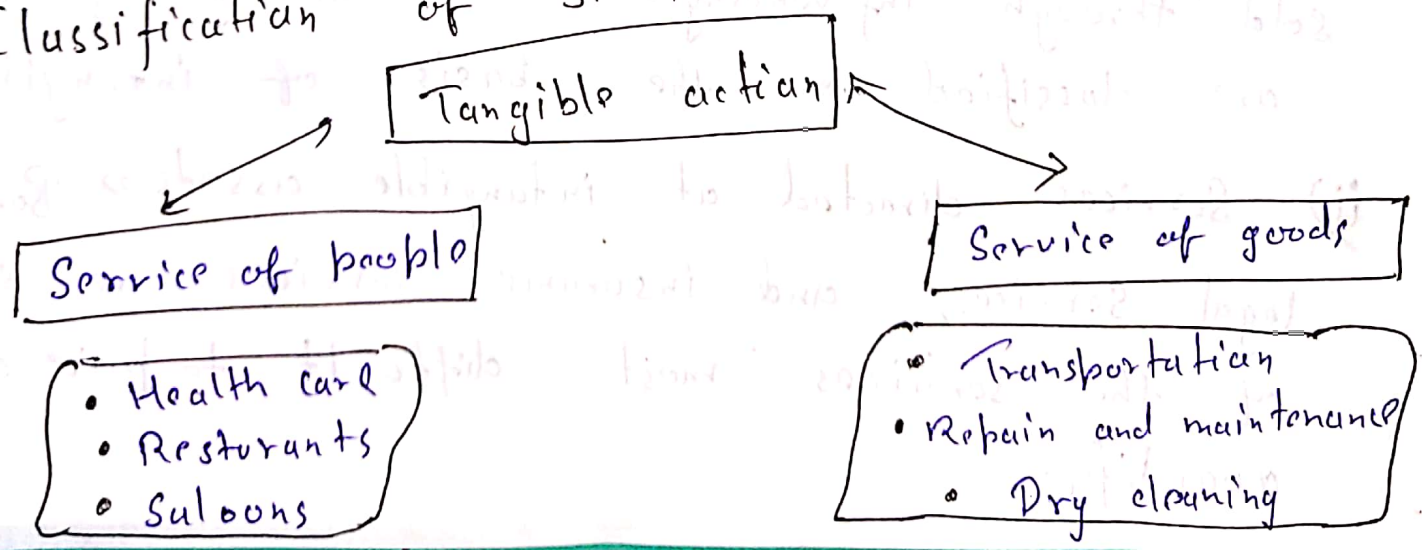 Classification of
Tangible action
Service of people
Service of goods
• Health care
• Resturants
• Saloons
• Transportation
• Repair and maintenance
• Dry cleaning